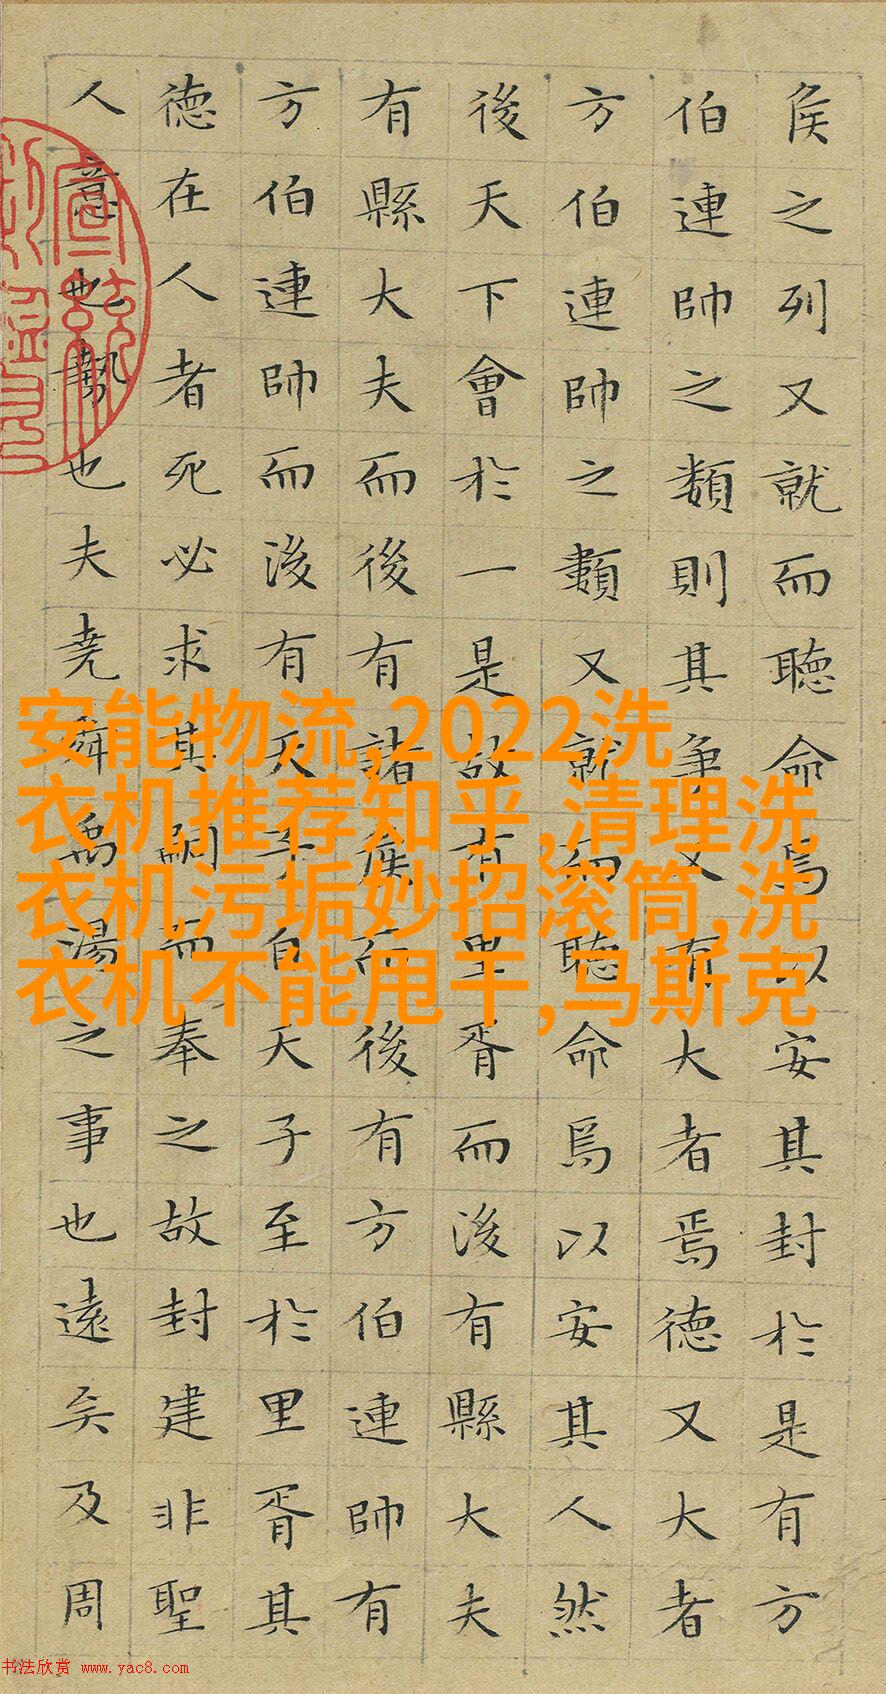 侯之列又就而聽命焉以安其封於是有方
伯連帥之類則其爭又有大者焉德又大者
方伯連帥之類又就而聽命焉以安其人然
後天下會於一是故有里胥而後有縣大夫
有縣大夫而後有諸侯而後有方伯連帥有
方伯連帥而後有天子自天子至於里胥其
德在人者死必求其嗣而奉之故封建非聖
人意也勢也夫堯舜禹湯之事也遠矣及周
安能物流,2022洗
衣机推荐知乎,清理洗
衣机污垢妙招滚筒,洗
衣机不能甩干,马斯克
书法欣赏 www.yac8.com